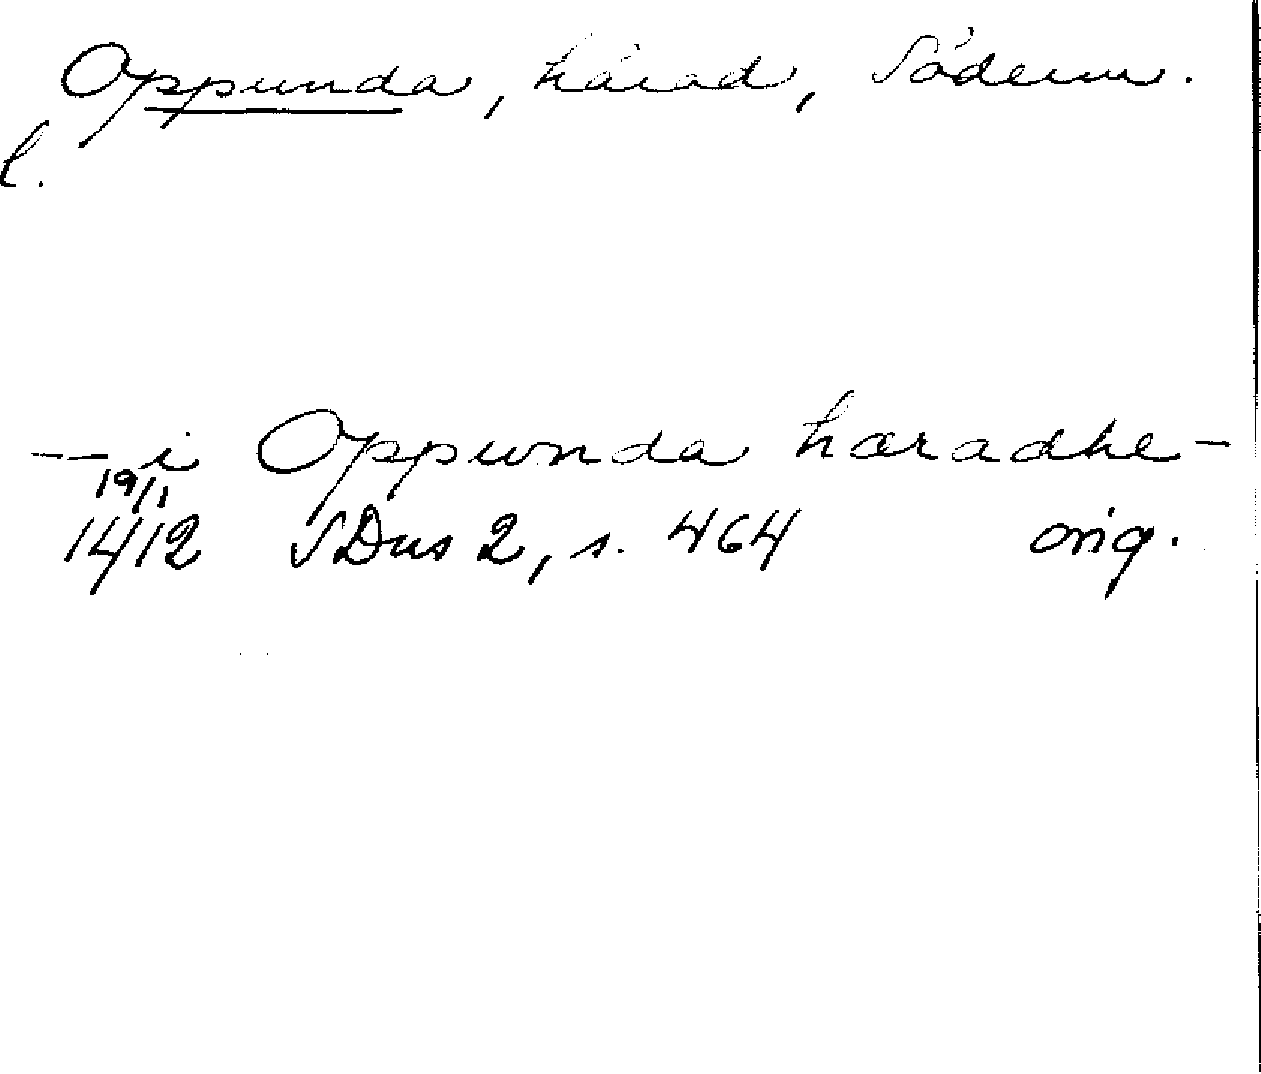 Oppunda, härad, Söderm.
l.
-- i Oppunda hæradhe -
19/1
1412 SDns 2, s. 464 orig.